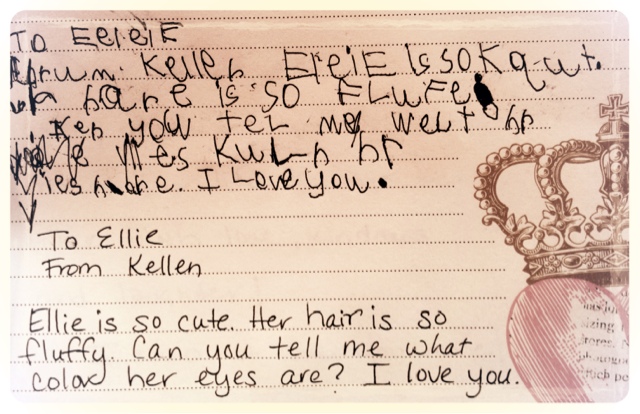 To EEreiE
frum. Kellen EreiE is so Kqut.
hr hare is so FLuFe
Ken you teL me welt hr
Kulr hr
ies are. I Love you.
To Ellie
From Kellen
Ellie is so cute. Her hair is so
fluffy. Can you tell me what
color her eyes are? I love you.